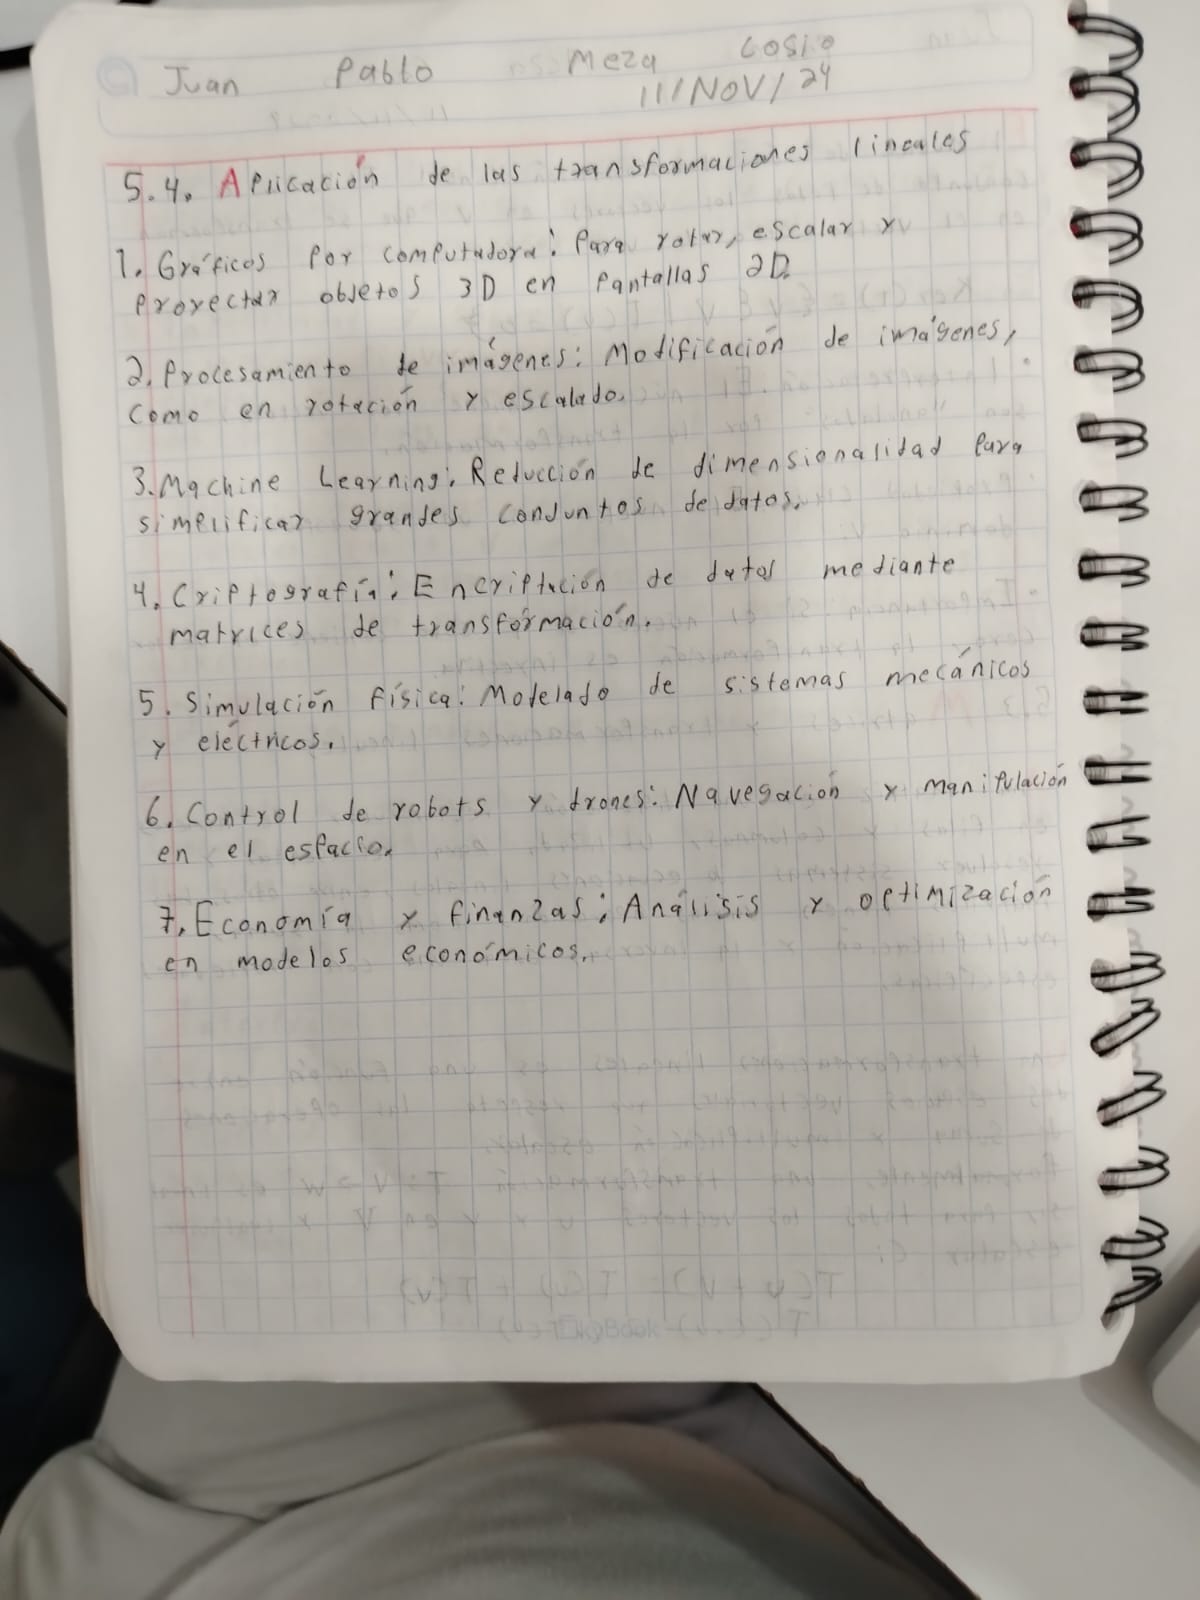 Juan Pablo Meza Cosio
11/NOV/24
5.4. Aplicación de las transformaciones lineales
1. Gráficos por computadora: Para rotar, escalar y
proyectar objetos 3D en pantallas 2D.
2. Procesamiento de imágenes: Modificación de imágenes,
como en rotación y escalado.
3. Machine Learning: Reducción de dimensionalidad para
simplificar grandes conjuntos de datos.
4. Criptografía: Encriptación de datos mediante
matrices de transformación.
5. Simulación física: Modelado de sistemas mecánicos
y eléctricos.
6. Control de robots y drones: Navegación y manipulación
en el espacio.
7. Economía y finanzas: Análisis y optimización
en modelos económicos.